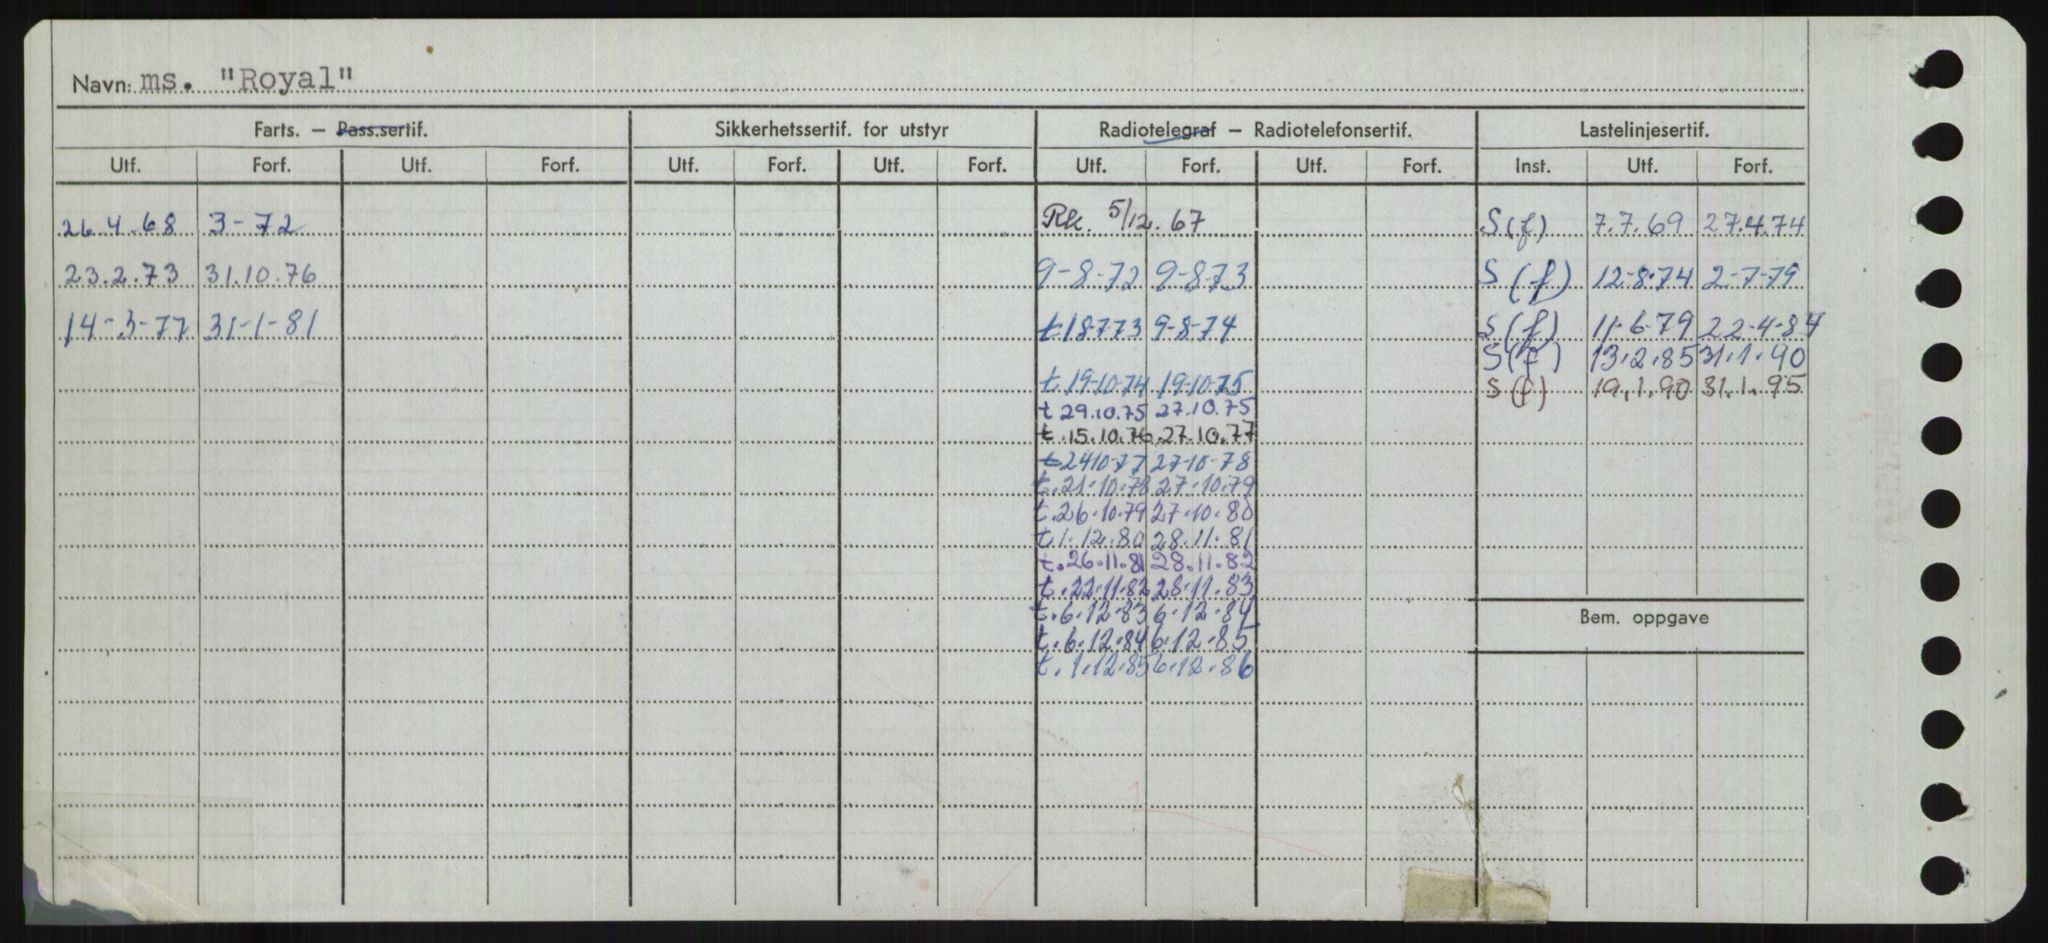 Navn: ms. "Royal"
Farts. — Pass.sertif. Sikkerhetssertif. for utstyr Radiotelegraf — Radiotelefonsertif. Lastelinjesertif.
Utf. Forf. Utf. Forf. Utf. Forf. Utf. Forf. Utf. Forf. Utf. Forf. Inst. Utf. Forf.
26.4.68 3-72 Rk. 5/12.67 S(f) 7.7.69 27.4.74
23.2.73 31.10.76 9-8-72 9-8-73 S(f) 12-8-74 2-7-79
14-3-77 31-1-81 t 18-7-73 9-8-74 S(f) 11-6-79 22-4-84
S(f) 13.2.85 31.1.90
t. 19-10-74 19-10-75 S(f) 19.1.90 31.1.95
t 29.10.75 27.10.75
t. 15.10.76 27.10.77
t 24-10-77 27-10-78
t. 21.10.78 27.10.79
t. 26.10.79 27.10.80
t. 1.12.80 28.11.81
t. 26.11.81 28.11.82
t. 22.11.82 28.11.83
t. 6.12.83 6.12.84
Bem. oppgave
t. 6.12.84 6.12.85
t. 1.12.85 6.12.86